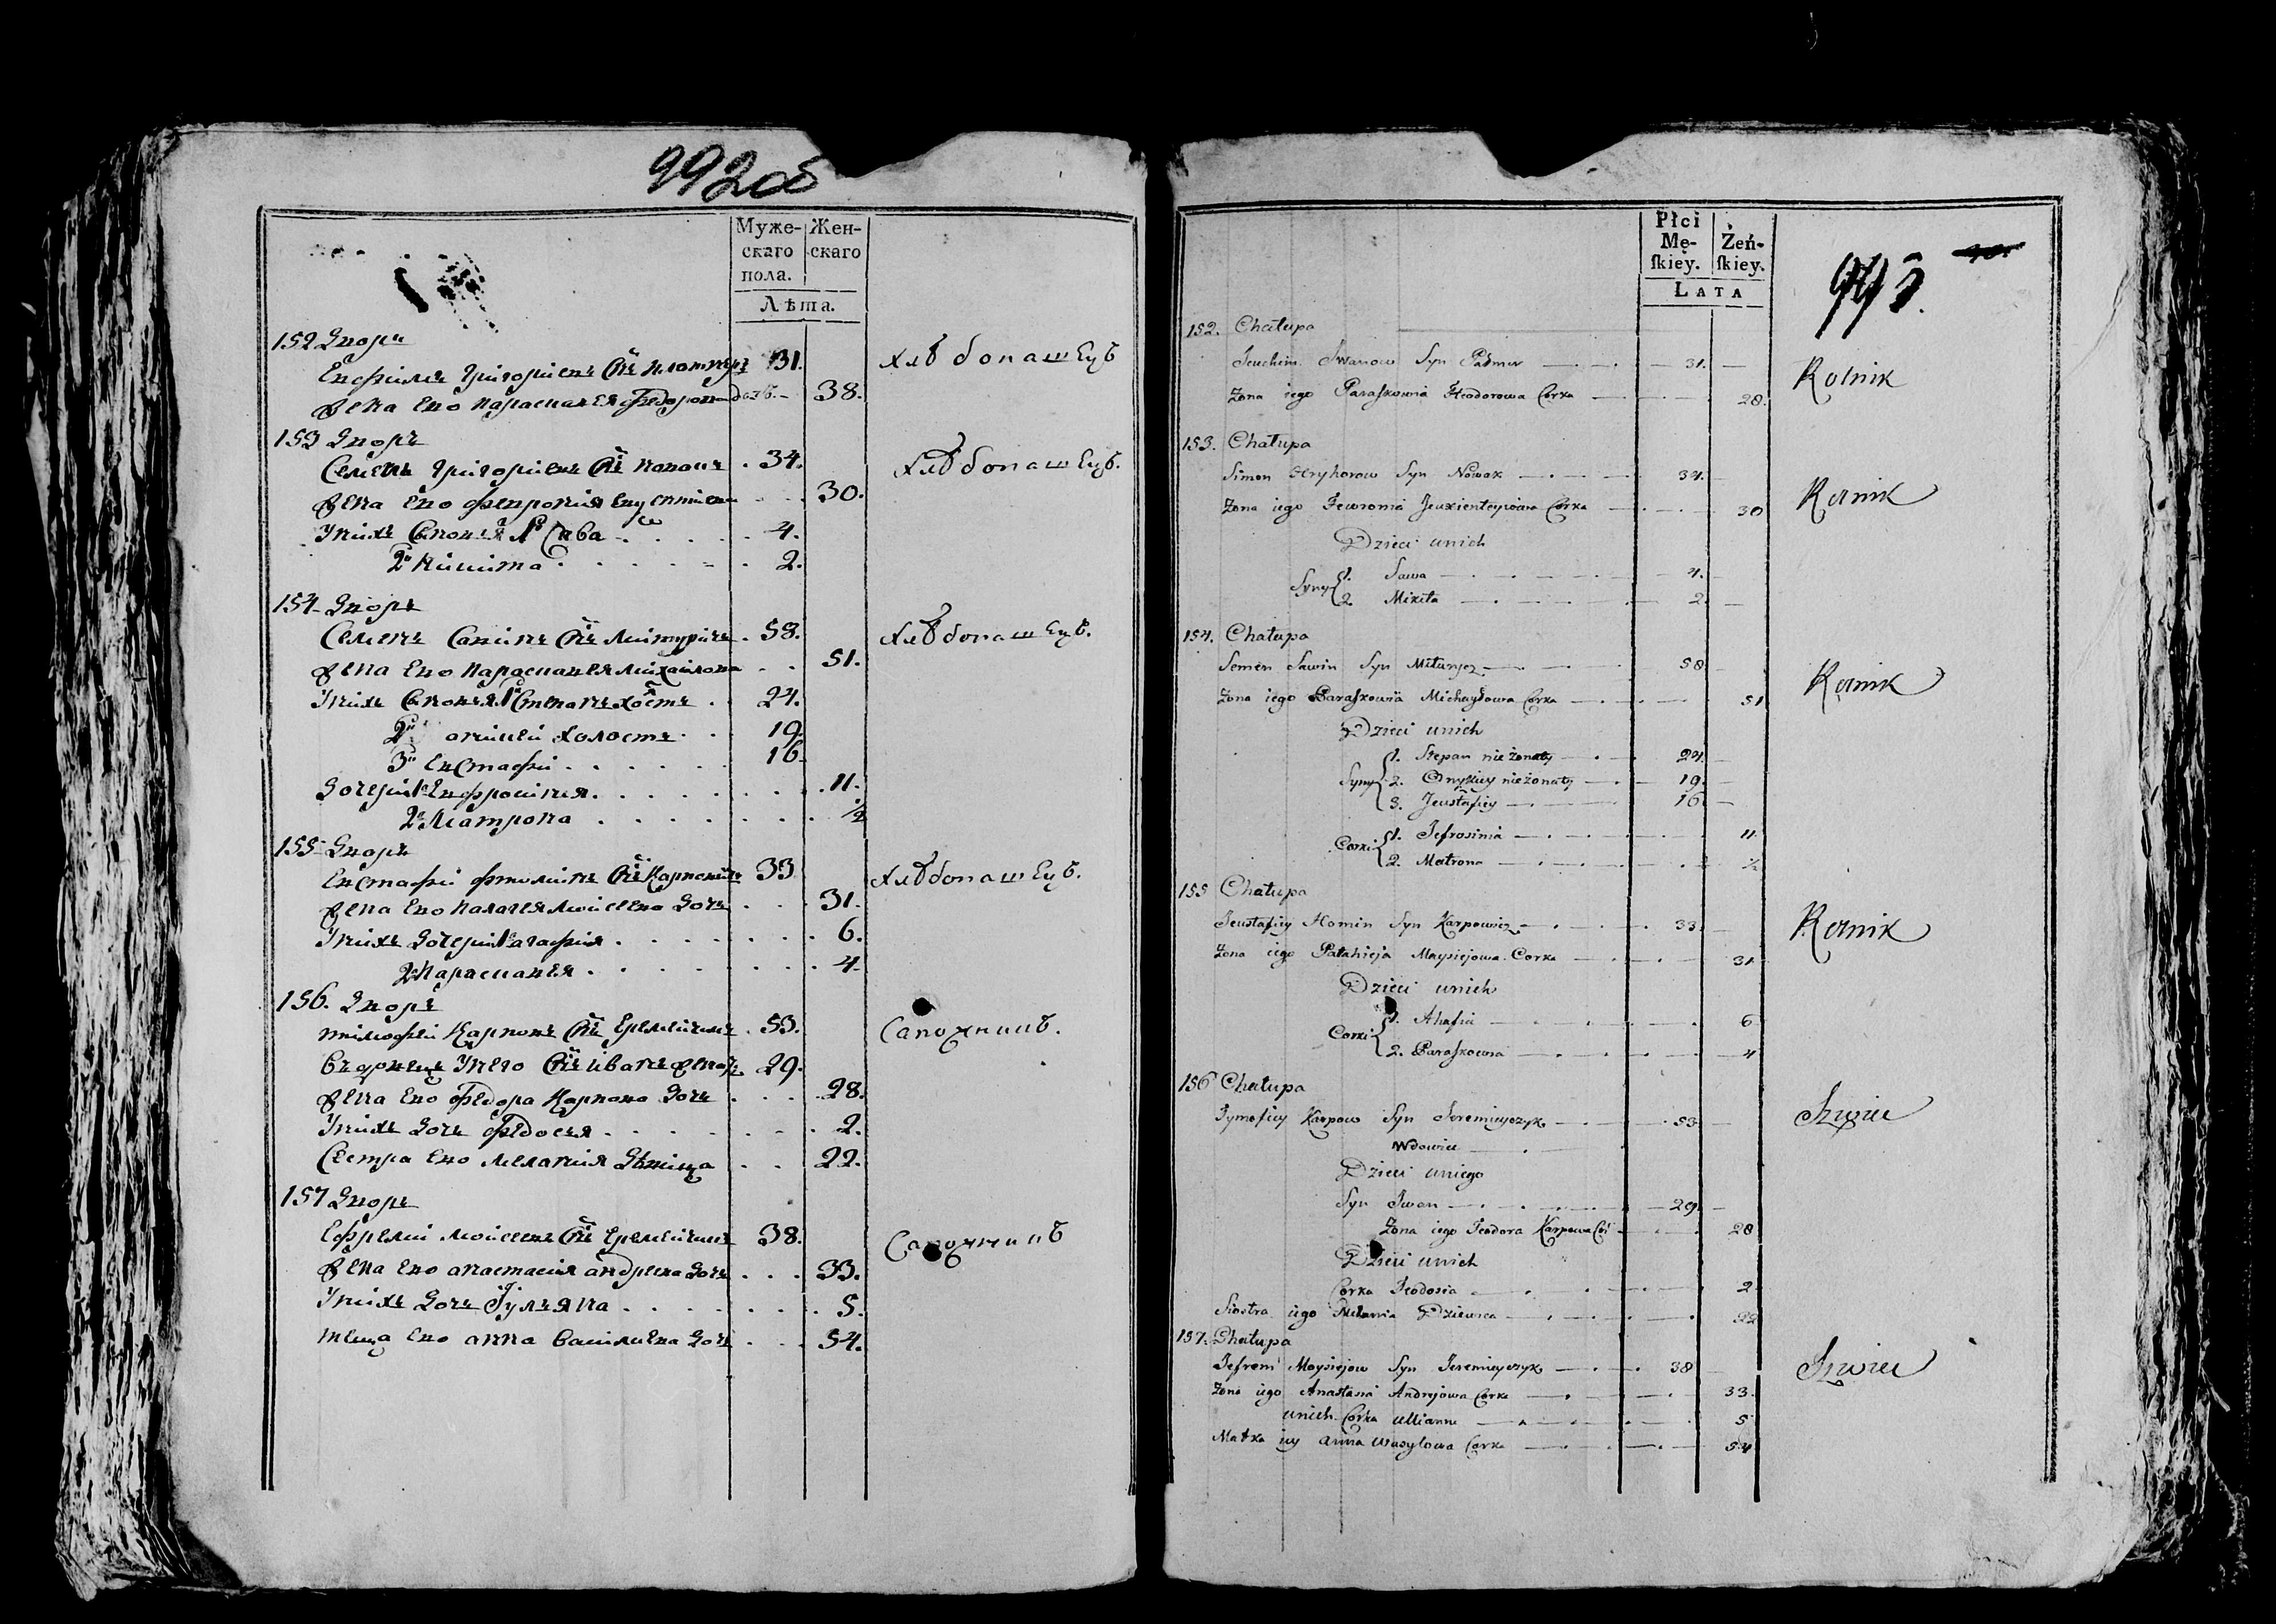 992 об
Муже-
скаго
пола.
Жен-
скаго
Лѣта.
152 Дворъ
31. Хлѣбопашецъ
Жена Ево Парасковея Федорова дочь 38.
153 Дворъ
Семенъ Григориевъ Сн̃ъ Новакъ 34. Хлѣбопашецъ.
Жена Ево Феврония 30.
Унихъ Сыновья 1й Сава 4.
2й Микита 2.
154 Дворъ
Семенъ Савинъ Сн̃ъ Митуричъ 58. Хлѣбопашецъ.
Жена Ево Парасковея Михайлова 51.
Унихъ Сыновья 1й Степанъ холостъ 24.
2й аникей холостъ 19
3й Евстафи 16
Дочери 1я Евфросиния 11.
2я Матрона ½
155 Дворъ
Евстафи Фоминъ Сн̃ъ Карповичъ 33 Хлѣбопашецъ.
Жена Ево Палагея Мойсеева Дочь 31.
Унихъ Дочери 1я агафия 6.
2я Парасковея 4.
156. Дворъ
тимофей Карповъ Сн̃ъ Еремейчикъ 53. Сапожникъ.
Вдовецъ Унево Сн̃ъ иванъ женатъ 29.
Жена Ево Федора Карпова Дочь 28.
Унихъ Дочь Федосея 2.
Сестра Ево мелания Дѣвица 22.
157 Дворъ
Ефремъ мойсеевъ Сн̃ъ Еремейчикъ 38. Сапожникъ
Жена Ево анастасия андреева Дочь 33.
Унихъ Дочь Гульяна 5.
теща Ево анна Василиева Дочь 54.
Płci
Mę-
ſkiey.
Żeń-
ſkiey.
LATA
993.
152. Chałupa
Jeuchim Jwanow Syn 31. Rolnik
Zona iego Paraſkowia Fteodorowa Corka 28.
153. Chałupa
Simon Hryhorow Syn Nowak 34. Rolnik
Zona iego Fewronia Corka 30
Dzieci unich
Syny 1. Sawa 4.
2. Mikita 2.
154. Chałupa
Semen Sawin Syn Miturycz 58 Rolnik
Zona iego Paraſkowia Michayłowa Corka 51
Dzieci unich
Syny 1. Stepan nieżonaty 24
2. Onykiey nieżonaty 19.
3. Jeustafiey 16
Corki 1. Jefrosinia 11
2. Matrona ½
155 Chałupa
Jeustafiey Homin Syn Karpowicz 33. Rolnik
Zona iego Pałahieja Maysiejowa Corka 31
Dzieci unich
Corki 1. Ahafia 6
2. Paraſkowia 4
156 Chałupa
Tymofiey Karpow Syn Jeremieyczyk 53 Szwiec
Wdowiec
Dzieci uniego
Syn Jwan 29.
Zona iego Teodora Karpowa 28
Dzieci unich
Corka Teodosia 2
Siostra iego Mełania Dziewica 22
157. Chałupa
Jefrem Maysiejow Syn Jeremieyczyk 38 Szwiec
Zona iego Anastasia Andrejowa Corka 33.
unich Corka Ullianna 5
Matka iey anna Wasylowa Corka 54